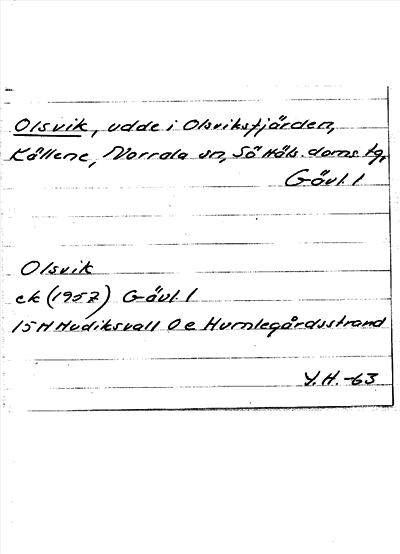 Olsvik, udde i Olsviksfjärden,
Källene, Norrala sn, Sö Häls. doms. tg,
Gävl. l
Olsvik
ek (1957) Gävl. l
15 H Hudiksvall 0 e Humlegårdsstrand
Y.H. -63